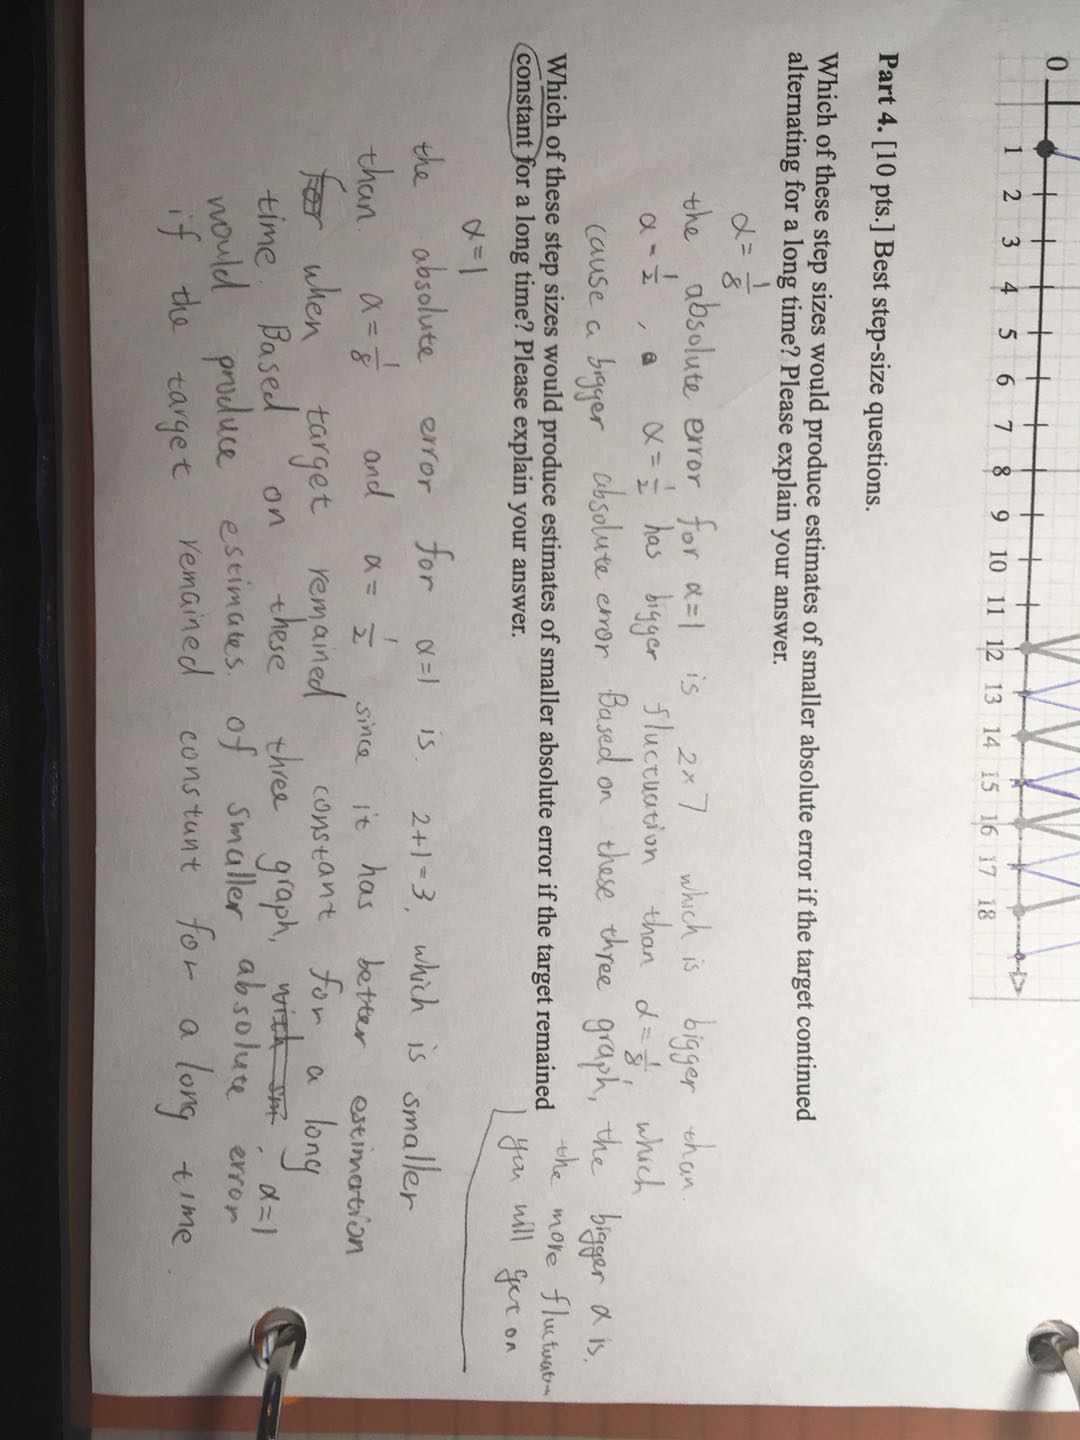 0
1 2 3 4 5 6 7 8 9 10 11 12 13 14 15 16 17 18
Part 4. [10 pts.] Best step-size questions.
Which of these step sizes would produce estimates of smaller absolute error if the target continued
alternating for a long time? Please explain your answer.
α = 1/8
the absolute error for α=1 is 2×7 which is bigger than.
α = 1/2, α = 1/2 has bigger fluctuation than α = 1/8, which
cause a bigger absolute error. Based on these three graph, the bigger α is,
the more fluctuation
you will get on
Which of these step sizes would produce estimates of smaller absolute error if the target remained
constant for a long time? Please explain your answer.
α=1
the absolute error for α=1 is. 2+1=3, which is smaller
than α=1/8 and α=1/2 since it has better estimation
For when target remained constant for a long
time. Based on these three graph, with α=1
would produce estimates of smaller absolute error
if the target remained constant for a long time.